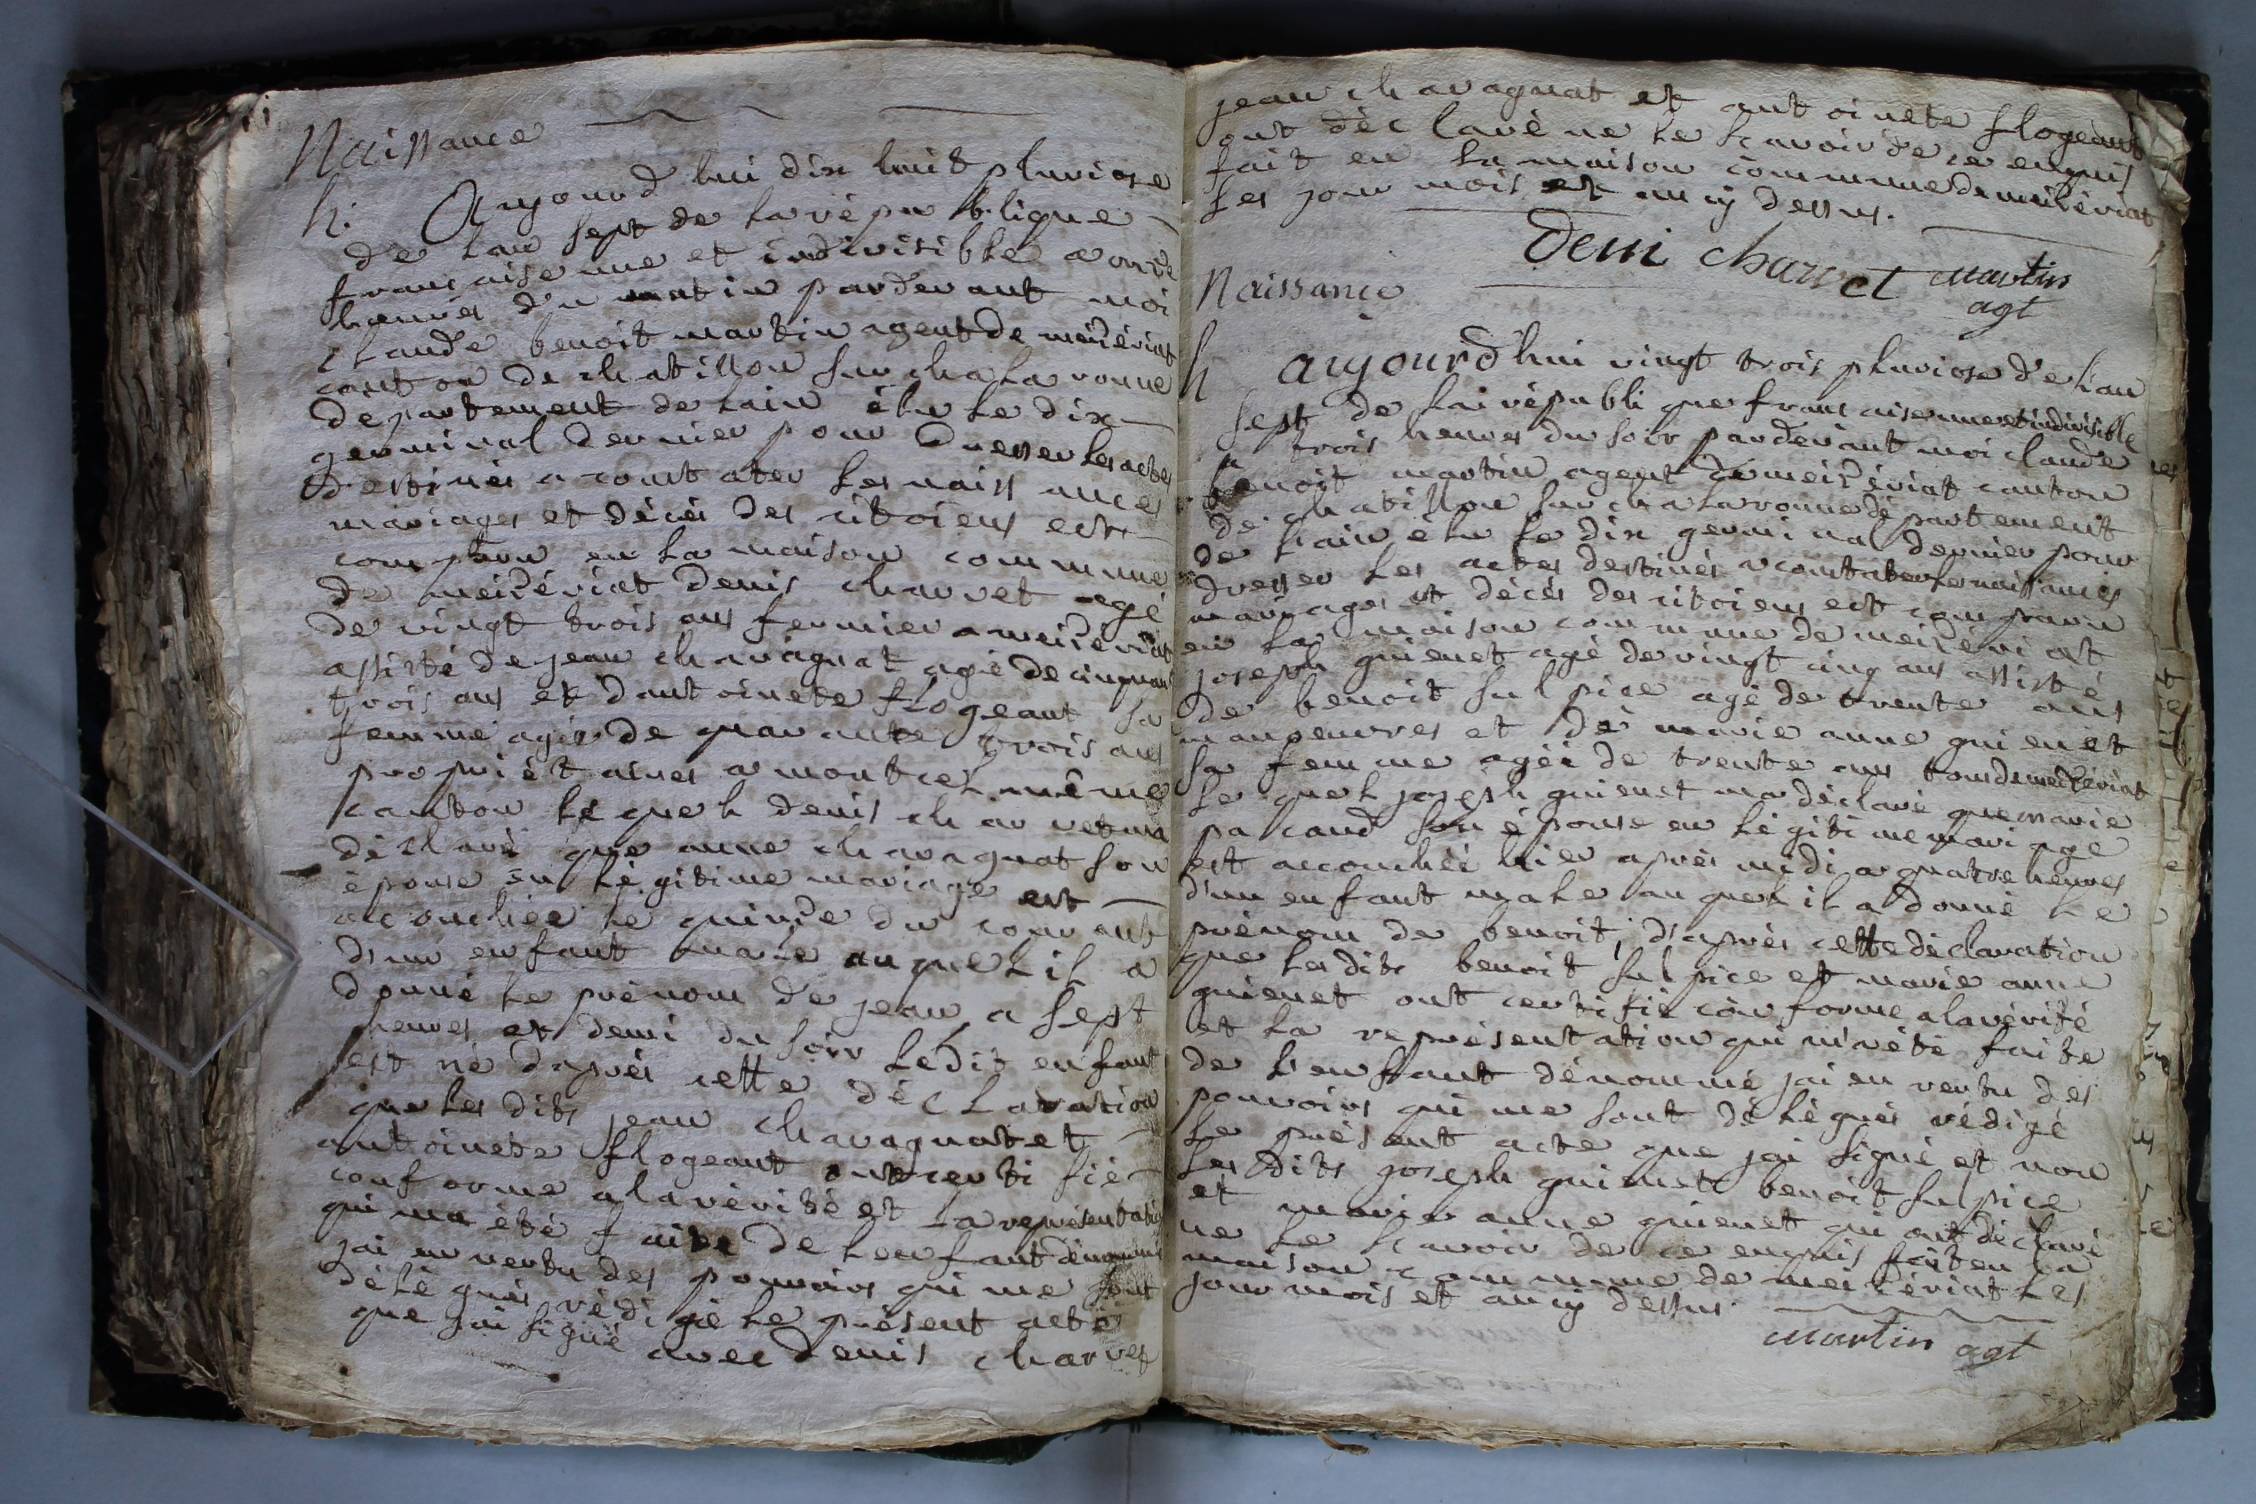 Naissance
h. Aujourd hui dix huit pluviose
de lan sept de la république
française une et indivisible a onze
heures du matin pardevant moi
claude benoit martin agent de meizériat
canton de chatillon sur chalaronne
departement de lain élu le dix
germinal dernier pour dresser les actes
destinés a constater les naissances
mariages et décés des citoiens est
comparu en la maison commune
de meizériat denis charvet agé
de vingt trois ans fermier a meizériat
assisté de jean chavagnat agé de cinquante
trois ans et dantoinete flogeant sa
femme agée de quarante trois ans
propriétaires a montcel même
canton le quel denis charvet ma
déclaré que anne chavagnat son
épouse en légitime mariage est
accouchée le quinze du courant
dun enfant male au quel il a
donné le prénom de jean, a sept
heures et demi du soir ledit enfant
est né daprés cette déclaration
que les dits jean chavagnat et
antoinete flogeant ont certifié
conforme a la vérité et la représentation
qui ma été faite de lenfant dénommé
jai en vertu des pouvoirs qui me sont
délégués rédigé le présent acte
que jai signé avec denis charvet
jean chavagnat et antoinete flogeant
ont déclaré ne le scavoir de ce enquis
fait en la maison commune de meizériat
les jour mois et an cy dessus.
Deni charvet martin
agt
Naissance
h aujourd'hui vingt trois pluviose de lan
sept de la république française une et indivisible
a trois heures du soir pardevant moi claude
benoit martin agent de meizériat canton
de chatillon sur chalaronne département
de lain élu le dix germinal dernier pour
dresser les actes destinés a constater les naissances
mariages et décés des citoiens est comparu
en la maison commune de meizériat
joseph guienet agé de vingt cinq ans assisté
de benoit sulpice agé de trente ans
manoeuvres et de marie anne guienet
sa femme agée de trente ans tous de meizériat
le quel joseph guienet ma déclaré que marie
pacaud son épouse en légitime mariage
est accouchée hier aprés midi a quatre heures
d'un enfant male au quel il a donné le
prénom de benoit, d'aprés cette déclaration
que lesdits benoit sulpice et marie anne
guienet ont certifié conforme a la vérité
et la représentation qui m'a été faite
de l'enfant dénommé jai en vertu des
pouvoirs qui me sont délégués rédigé
le présent acte que jai signé et non
les dits joseph guienet benoit sulpice
et marie anne guienet qui ont déclaré
ne le scavoir de ce enquis fait en la
maison commune de meizériat les
jour mois et an cy dessus.
martin agt